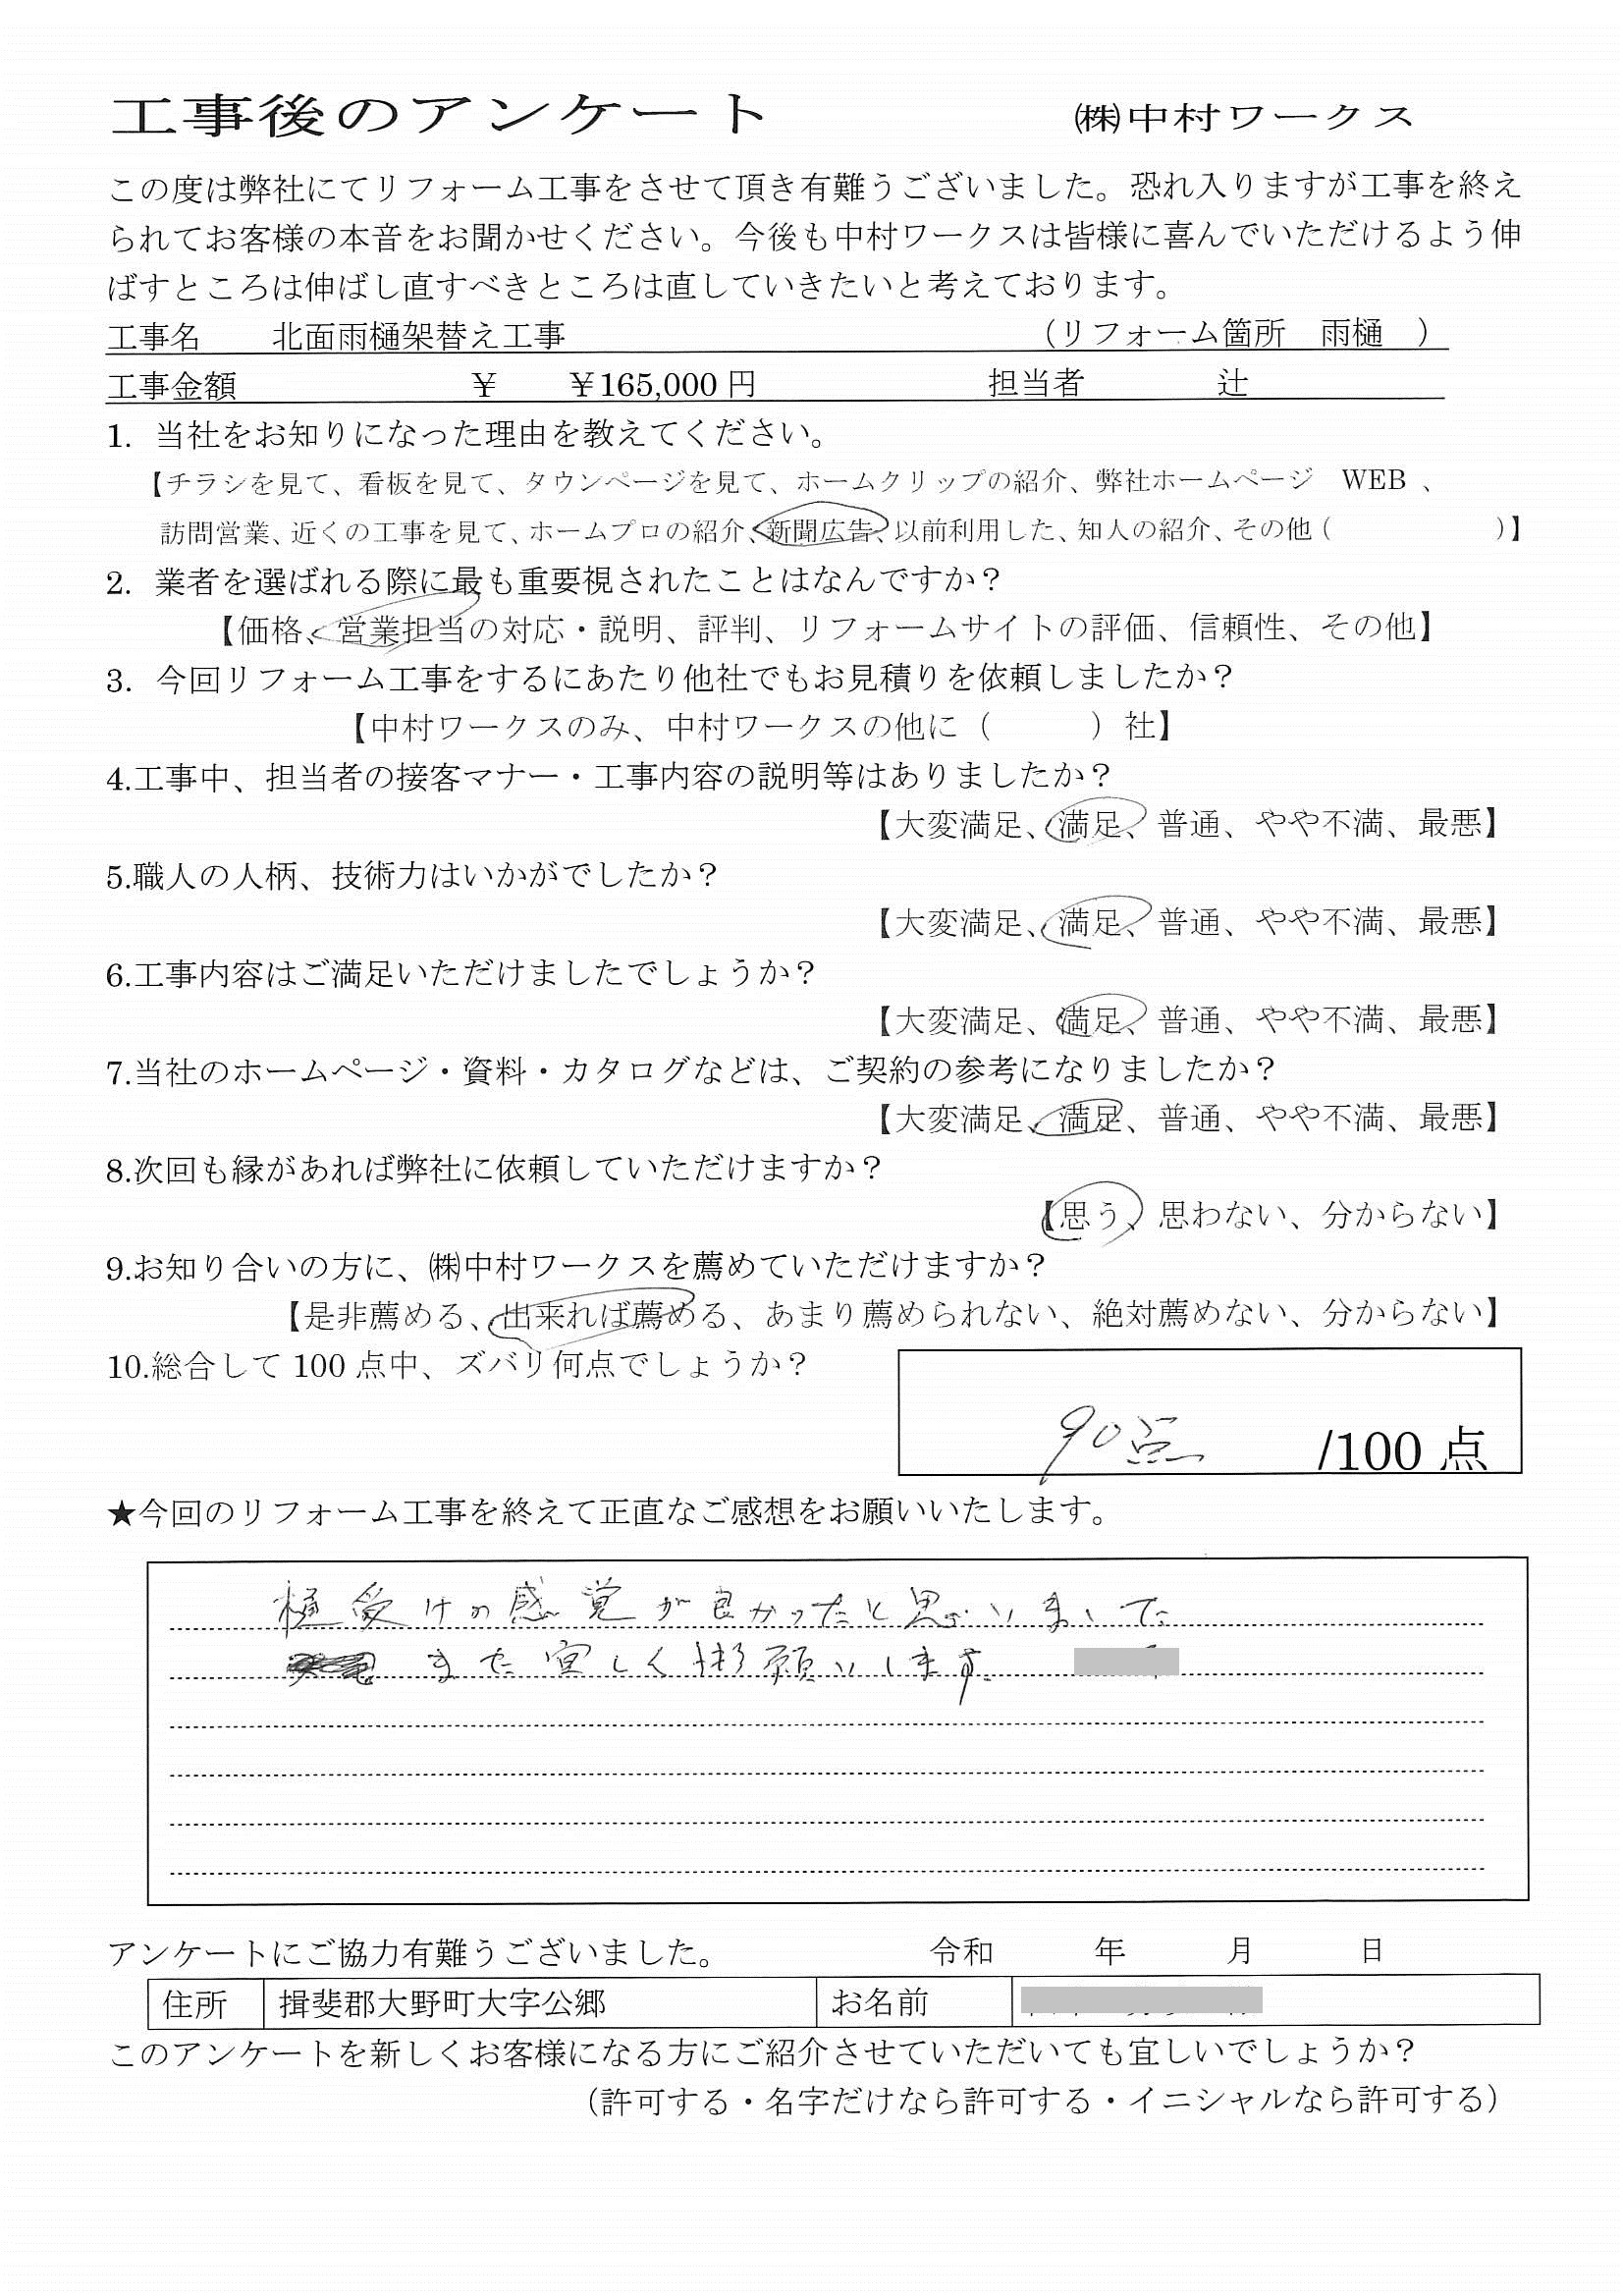 工事後のアンケート ㈱中村ワークス
この度は弊社にてリフォーム工事をさせて頂き有難うございました。恐れ入りますが工事を終え
られてお客様の本音をお聞かせください。今後も中村ワークスは皆様に喜んでいただけるよう伸
ばすところは伸ばし直すべきところは直していきたいと考えております。
工事名 北面雨樋架替え工事 （リフォーム箇所 雨樋 ）
工事金額 ￥ ￥165,000 円 担当者 辻
1. 当社をお知りになった理由を教えてください。
【チラシを見て、看板を見て、タウンページを見て、ホームクリップの紹介、弊社ホームページ WEB 、
訪問営業、近くの工事を見て、ホームプロの紹介、新聞広告、以前利用した、知人の紹介、その他（ ）】
2. 業者を選ばれる際に最も重要視されたことはなんですか？
【価格、営業担当の対応・説明、評判、リフォームサイトの評価、信頼性、その他】
3. 今回リフォーム工事をするにあたり他社でもお見積りを依頼しましたか？
【中村ワークスのみ、中村ワークスの他に（ ）社】
4.工事中、担当者の接客マナー・工事内容の説明等はありましたか？
【大変満足、満足、普通、やや不満、最悪】
5.職人の人柄、技術力はいかがでしたか？
【大変満足、満足、普通、やや不満、最悪】
6.工事内容はご満足いただけましたでしょうか？
【大変満足、満足、普通、やや不満、最悪】
7.当社のホームページ・資料・カタログなどは、ご契約の参考になりましたか？
【大変満足、満足、普通、やや不満、最悪】
8.次回も縁があれば弊社に依頼していただけますか？
【思う、思わない、分からない】
9.お知り合いの方に、㈱中村ワークスを薦めていただけますか？
【是非薦める、出来れば薦める、あまり薦められない、絶対薦めない、分からない】
10.総合して 100 点中、ズバリ何点でしょうか？
90点 /100 点
★今回のリフォーム工事を終えて正直なご感想をお願いいたします。
樋受けの感覚が良かったと思いました
また宜しく御願いします。
アンケートにご協力有難うございました。 令和 年 月 日
住所 揖斐郡大野町大字公郷 お名前
このアンケートを新しくお客様になる方にご紹介させていただいても宜しいでしょうか？
（許可する・名字だけなら許可する・イニシャルなら許可する）